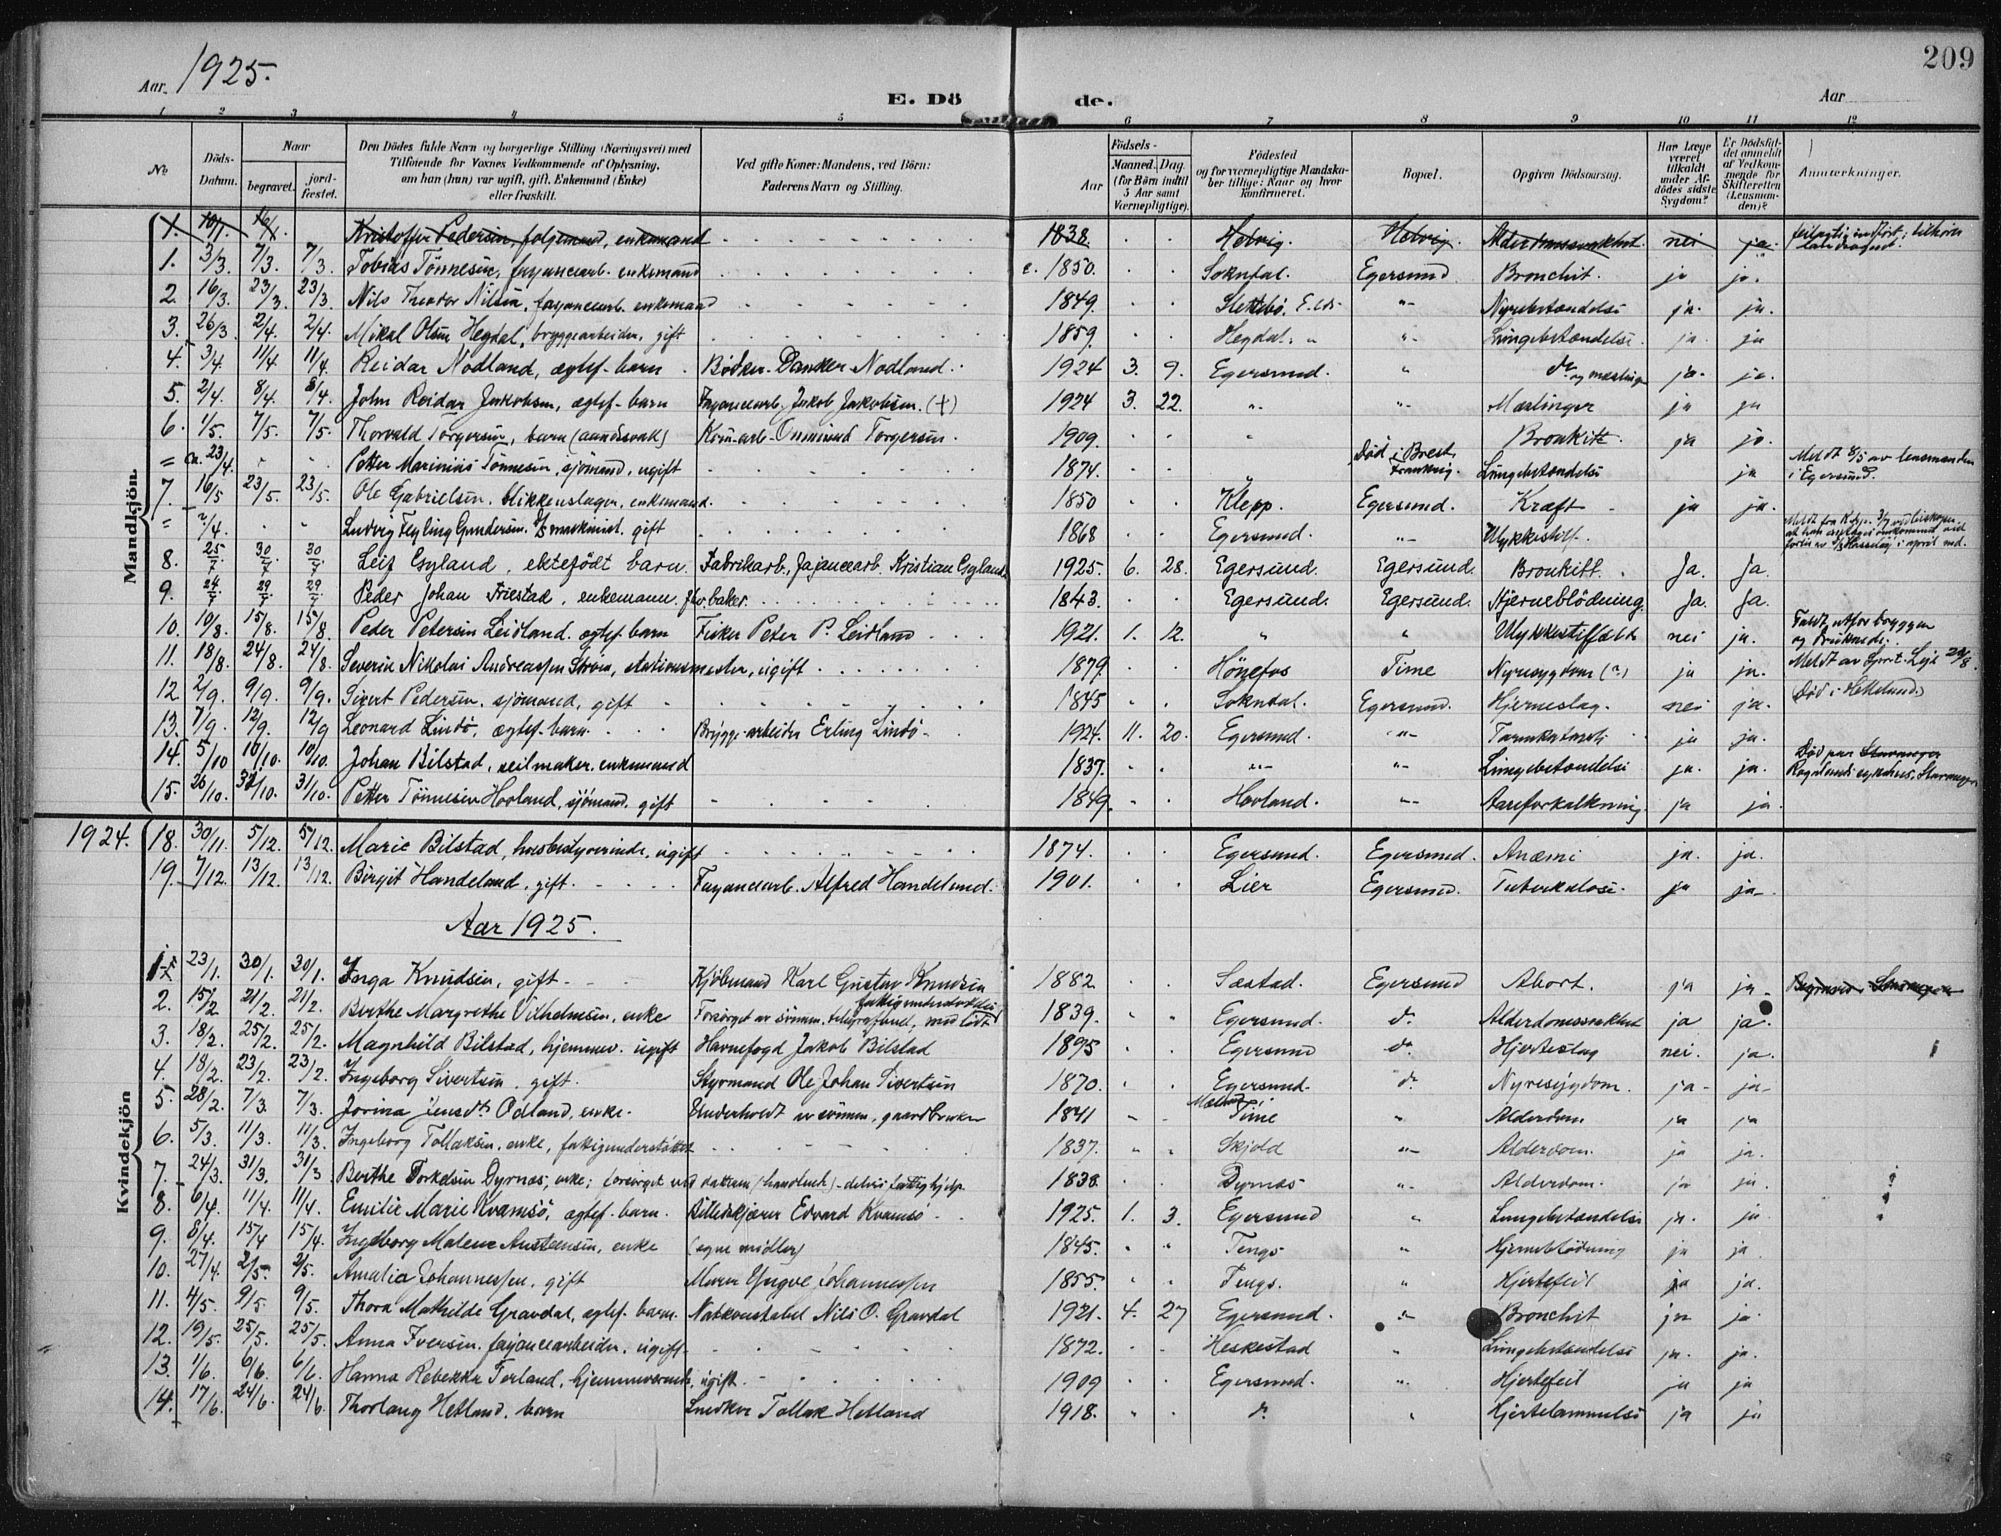 209
Aar 1925.
E. Dö de.
Aar
1 2 3 4 5 6 7 8 9 10 11 12
No. Döds-Datum. Naar begravet. jord-fæstet. Den Dödes fulde Navn og borgerlige Stilling (Næringsvei) med Tilföiende for Voxnes Vedkommende af Oplysning, om han (hun) var ugift, gift, Enkemand (Enke) eller fraskilt. Ved gifte Koner: Mandens, ved Börn: Faderens Navn og Stilling. Födsels- Aar Maaned. Dag. (for Börn indtil 5 Aar samt Værnepligtige). Födested og for værnepligtige Mandskaber tillige: Naar og hvor konfirmeret. Bopæl. Opgiven Dödsaarsag. Har Læge været tilkaldt under Afdödes sidste Sygdom? Er Dödsfaldet anmeldt af Vedkommende for Skifteretten (Lensmanden)? Anmærkninger.
Mandkjön.
1. 10/1. 16/1. Kristoffer Pedersen, enkemand 1838. Helvig. Helvig. Alderdomssvakhet nei ja. feilagtig indført; tilhører landsognet.
1. 3/3. 7/3. 7/3. Tobias Tönnesen, fayancearb. enkemand c. 1850. Sokndal. Egersund Bronchit. ja ja.
2. 16/3. 23/3. 23/3. Nils Theodor Nilsen, fayancearb. enkemand 1849. Slettebö, E. lds. "- Nyrebetændelse ja. ja.
3. 26/3 2/4. 2/4. Mikal Olsen Hegdal, bryggearbeider, gift 1859. Hegdal. " "- Lungebetændelse. ja. ja
4. 3/4. 11/4 11/4. Reidar Nodland, ægtef. barn Bödker Danker Nodland. 1924 3. 9. Egersund. " do og mæslinger ja. ja.
5. 2/4. 8/4. 8/4. John Reidar Jakobsen, ægtef. barn Fayancearb. Jakob Jakobsen. (+) 1924 3. 22. "- "- Mæslinger ja ja
6. 1/5. 7/5. 7/5. Thorvald Torgersen, barn (aandssvak) Kom-arb. Ommund Torgersen. 1909. " Bronkitt. ja ja.
= ca. 23/4. Petter Marinius Tönnesen, sjömand, ugift 1874. " Död i Brest, Frankrig. Lungebetændelse ja Meldt 8/5 av lensmanden i Egersund.
7. 16/5 23/5. 23/5. Ole Gabrielsen, blikkenslager, enkemand. 1850 Klepp. Egersund. Kræft ja ja.
= ?/4. Ludvig Feyling Gundersen. maskinist. gift 1868 Egersund. "- Ulykkestilf.
8. 25/7 30/7. 30/7 Leif Egeland, ektefödt barn. Fabrikarb., Fajancearb. Kristian Egeland 1925. 6. 28. Egersund. Egersund. Bronkitt. Ja. Ja.
9. 24/7 29/7 29/7 Peder Johan Friestad, enkemann, fhv. baker. 1843. Egersund. Egersund. Hjerneblödning. Ja. Ja.
10. 10/8. 15/8. 15/8. Peder Petersen Leidland. ægtef. barn Fisker Peter P. Leidland 1921. 1. 12. " " Ulykkestilfælde nei ja. Faldt utfor bryggen og druknede.
11. 18/8. 24/8. 24/8. Severin Nikolai Andreassen Ström, stationsmester, ugift 1879. Hönefos Time Nyresygdom (?) ja ja.
12 2/9. 9/9. 9/9. Sivert Pedersen, sjömand, gift 1845 Sokndal. Egersund. Hjerneslag. nei ja. Död i Hetland
13. 7/9. 12/9. 12/9 Leonard Lindö, ægtef. barn. Bryggearbeider Erling Lindö 1924. 11. 20. Egersund. "- Tarmkatarrh ja ja.
14. 5/10 10/10. 10/10. Johan Bilstad, seilmaker. enkemand 1837. "- "- Lungebetændelse ja. ja. Död paa Rogalands sykehus, Stavanger
15. 26/10. 31/10. 31/10. Petter Tönnesen Hovland, sjömand. gift 1849. Hovland. "- Aareforkalkning ja ja.
1924.
18. 30/11. 5/12. 5/12. Marie Bilstad, husbestyrerinde, ugift 1874. Egersund. Egersund. Anæmi ja. ja.
19. 7/12. 13/12. 13/12. Birgit Handeland, gift. Fayancearb. Alfred Handeland. 1901. Lier Egersund. Tuberkulose. ja ja-
Aar 1925.
Kvindekjön
1 23/1. 30/1. 30/1. Inga Knudsen, gift. Kjöbmand Karl Gustav Knudsen 1882 Sæstad. Egersund Abort. ja ja-
2. 15/2 21/2. 21/2. Berthe Margrethe Vilhelmsen, enke 1839. Egersund. do. Alderdomssvakhet ja ja.
3. 18/2. 25/2. 25/2. Magnhild Bilstad, hjemmev. ugift Havnefogd Jakob Bilstad 1895 Egersund do Hjerteslag nei. ja.
4. 18/2. 23/2. 23/2. Ingeborg Sivertsen, gift. Styrmand Ole Johan Sivertsen 1870. Egersund. do. Nyresygdom. ja- ja-
5. 28/2. 7/3. 7/3. Jorina Jensdtr Ödland, enke. Underholdt av svigersön, gaardbruker 1841 Time " Alderdom ja ja
6. 5/3. 11/3. 11/3. Ingeborg Tollaksen, enke, fattigunderstöttet 1837. Skjold "- Alderdom. ja ja.
7. 24/3. 31/3. 31/3 Berthe Torkelsen Dyrnæs, enke; forsörget ved datteren - delvis fattighjelp 1838 Dyrnæs "- Alderdom. ja ja.
8. 6/4. 11/4. 11/4. Emilie Marie Kvamsö, ægtef. barn. Billedskjærer Edvard Kvamsö 1925. 1. 3. Egersund " Lungebetændelse ja. ja
9. 8/4. 15/4 15/4. Ingeborg Malene Austensen, enke (egne midler) 1845. Tengs " Hjerneblödning ja ja
10. 27/4. 2/5. 2/5. Amalia Johannessen, gift Murer Yngve Johannessen 1855 Tengs. " Hjertefeil ja ja.
11. 4/5. 9/5. 9/5. Thora Mathilde Gravdal, ægtef. barn. Natkonstabel Nils O. Gravdal 1921. 4. 27 Egersund. " Bronchit ja ja
12. 19/5. 25/5. 25/5. Anna Iversen, fayancearbeider, ugift 1872. Heskestad " Lungebetændelse ja. ja.
13. 1/6. 6/6. 6/6. Hanna Rebekka Torland, hjemmeværende, ugift. 1909 Egersund. " Hjertefeil ja ja
14. 17/6. 24/6. 24/6. Thorlaug Hetland. barn Snedker Tollak Hetland 1918. do. " Hjertelammelse ja ja